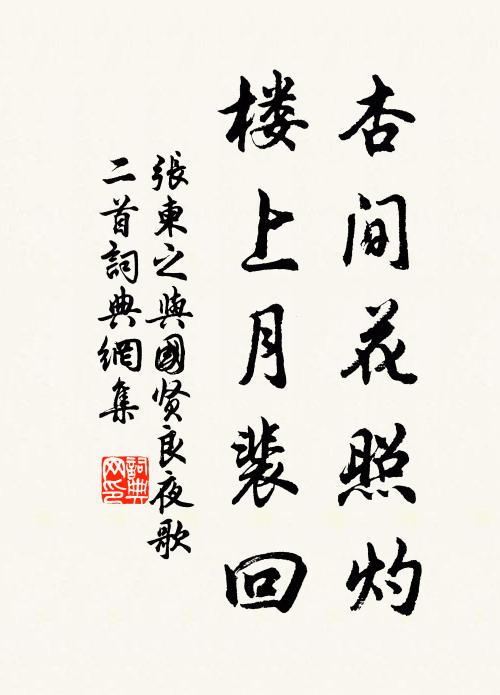 杏间花照灼
楼上月裴回
張東之與國贤良夜歌
二首詞典網集
詞典網印